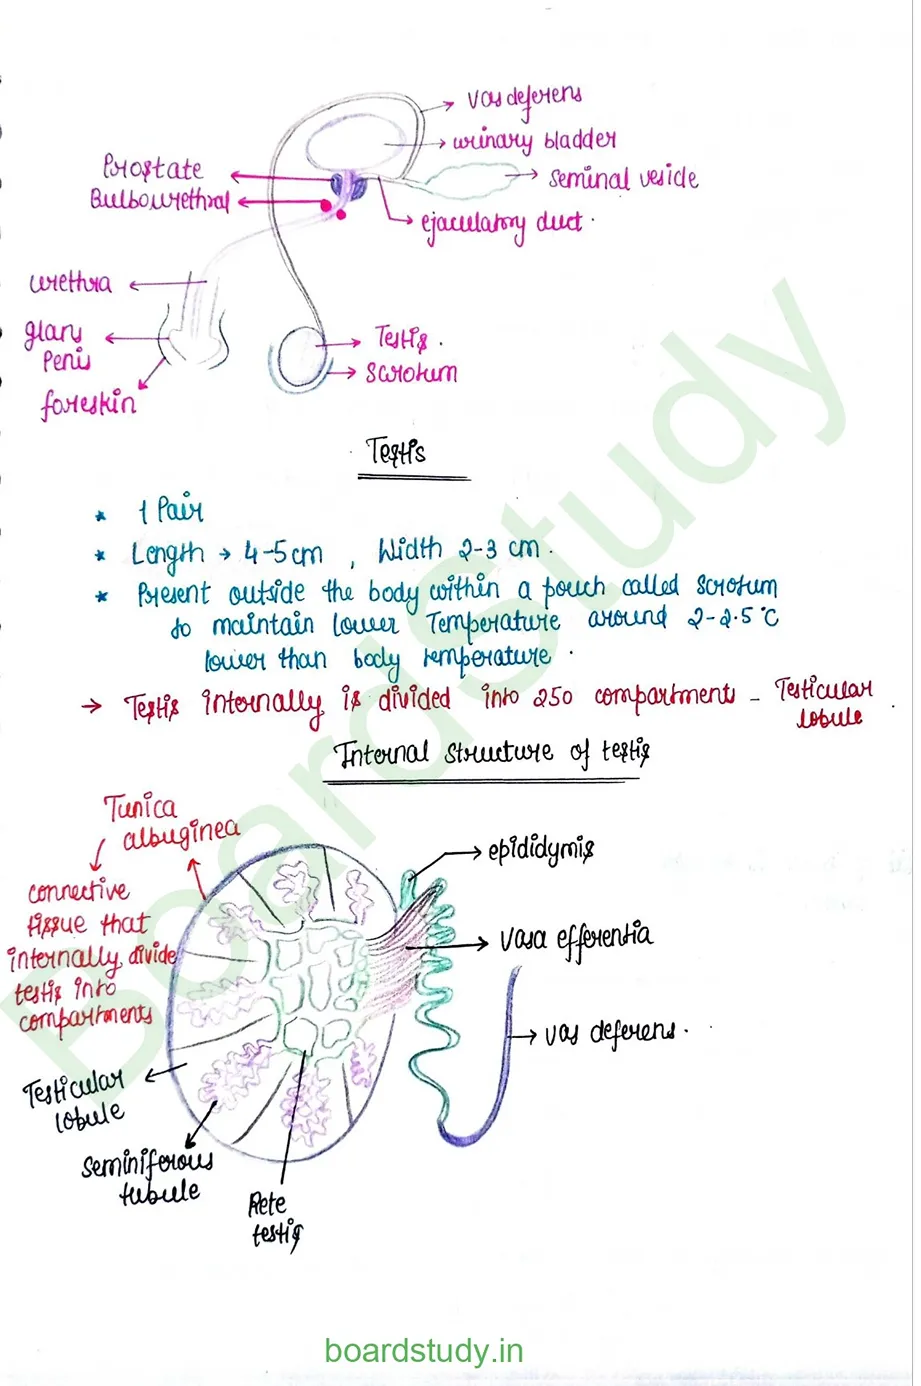 vas deferens
urinary bladder
Prostate
seminal vesicle
Bulbourethral
ejaculatory duct.
urethra
glans
Penis
Testis.
Scrotum
foreskin
Testis
* 1 Pair
* Length → 4-5cm, Width 2-3 cm.
* Present outside the body within a pouch called scrotum
to maintain lower Temperature around 2-2.5°C
lower than body temperature.
→ Testis internally is divided into 250 compartment - Testicular
lobule.
Internal structure of testis
Tunica
albuginea
epididymis
connective
tissue that
internally divide
testis into
compartments
vasa efferentia
vas deferens.
Testicular
lobule
seminiferous
tubule
Rete
testis
BoardStudy
boardstudy.in